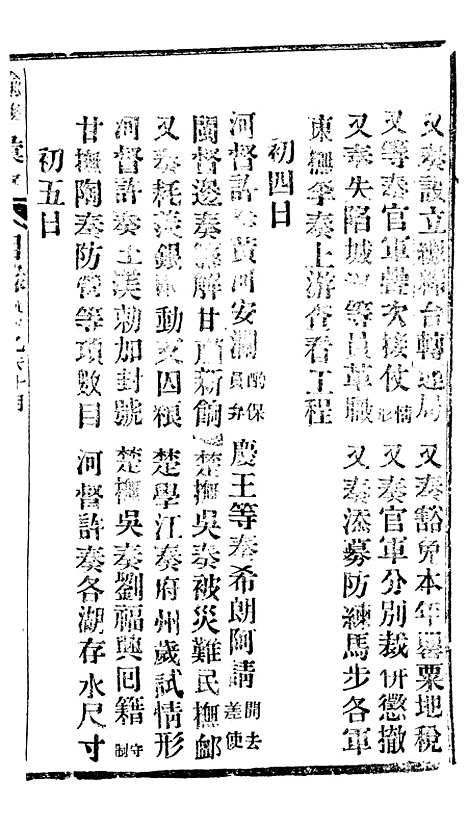 又奏設立總糧台轉運局　又奏豁免本年罌粟地稅
又等奏官軍疊次接仗情形　又奏官軍分別裁併懲撤
又奏失陷城池等員革職　又奏添募防練馬步各軍
東撫李奏上游查看工程
初四日
河督許奏黃河安瀾酌保員弁　慶王等奏希朗阿請開去差使
閩督邊奏籌解甘省新餉　楚撫吳奏被災難民撫卹
又奏耗羨銀動支囚糧　楚學江奏府州歲試情形
河督許奏王漢勅加封號　楚撫吳奏劉福興回籍守制
甘撫陶奏防營等項數目　河督許奏各湖存水尺寸
初五日
目錄